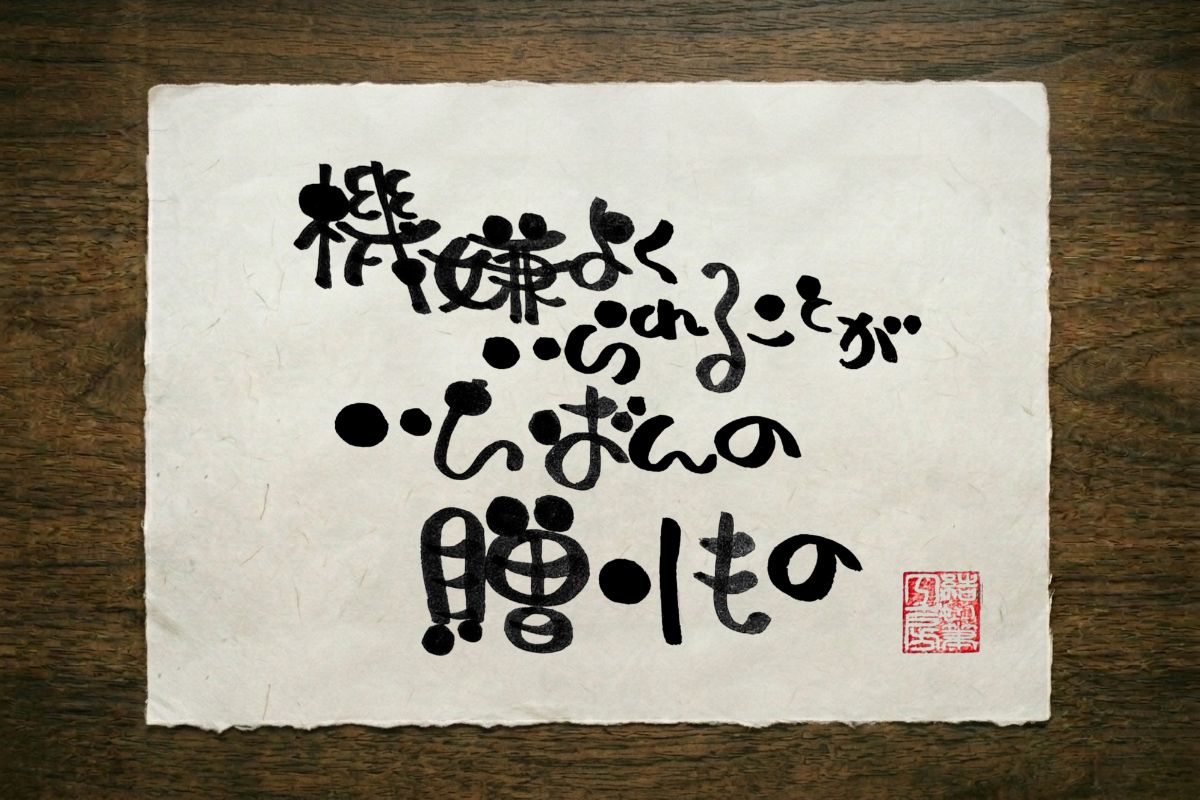 機嫌よく
いられることが
いちばんの
贈りもの